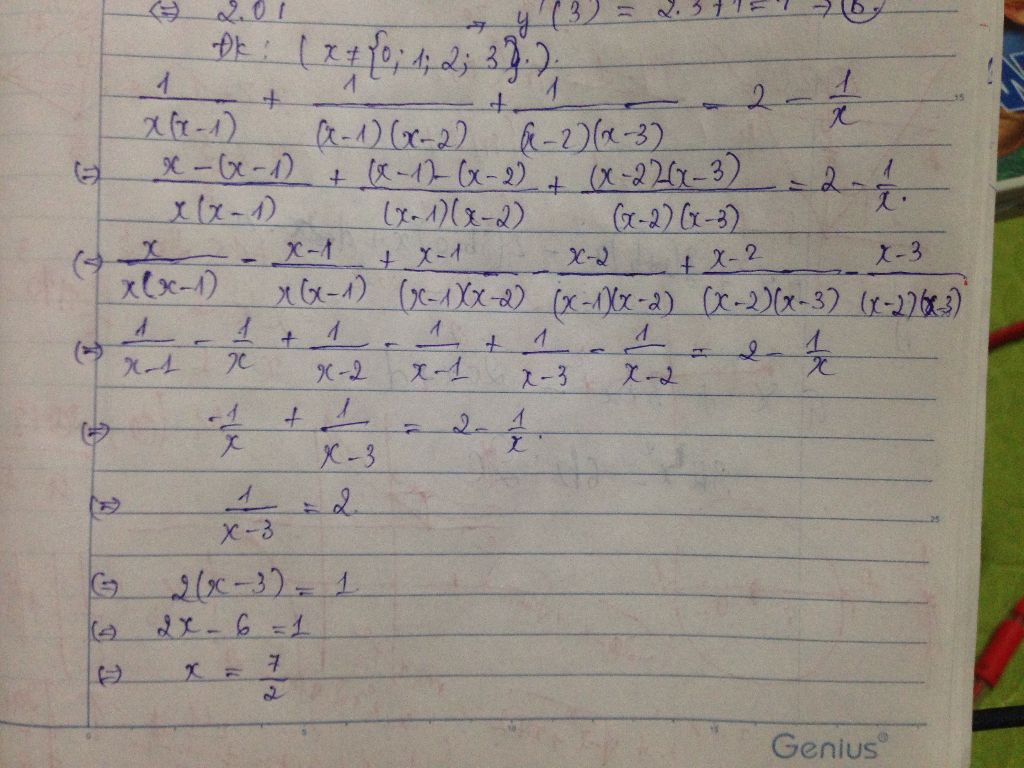 (=) 2.01 → y'(3) = 2.3+1=7 → B.
ĐK: (x ≠ {0; 1; 2; 3}.).
1/(x(x-1)) + 1/((x-1)(x-2)) + 1/((x-2)(x-3)) = 2 - 1/x
(=) (x-(x-1))/(x(x-1)) + ((x-1)-(x-2))/((x-1)(x-2)) + ((x-2)-(x-3))/((x-2)(x-3)) = 2 - 1/x.
(=) x/(x(x-1)) - (x-1)/(x(x-1)) + (x-1)/((x-1)(x-2)) - (x-2)/((x-1)(x-2)) + (x-2)/((x-2)(x-3)) - (x-3)/((x-2)(x-3))
(=) 1/(x-1) - 1/x + 1/(x-2) - 1/(x-1) + 1/(x-3) - 1/(x-2) = 2 - 1/x
(=) -1/x + 1/(x-3) = 2 - 1/x.
(=) 1/(x-3) = 2
(=) 2(x-3) = 1
(=) 2x - 6 = 1
(=) x = 7/2
Genius®